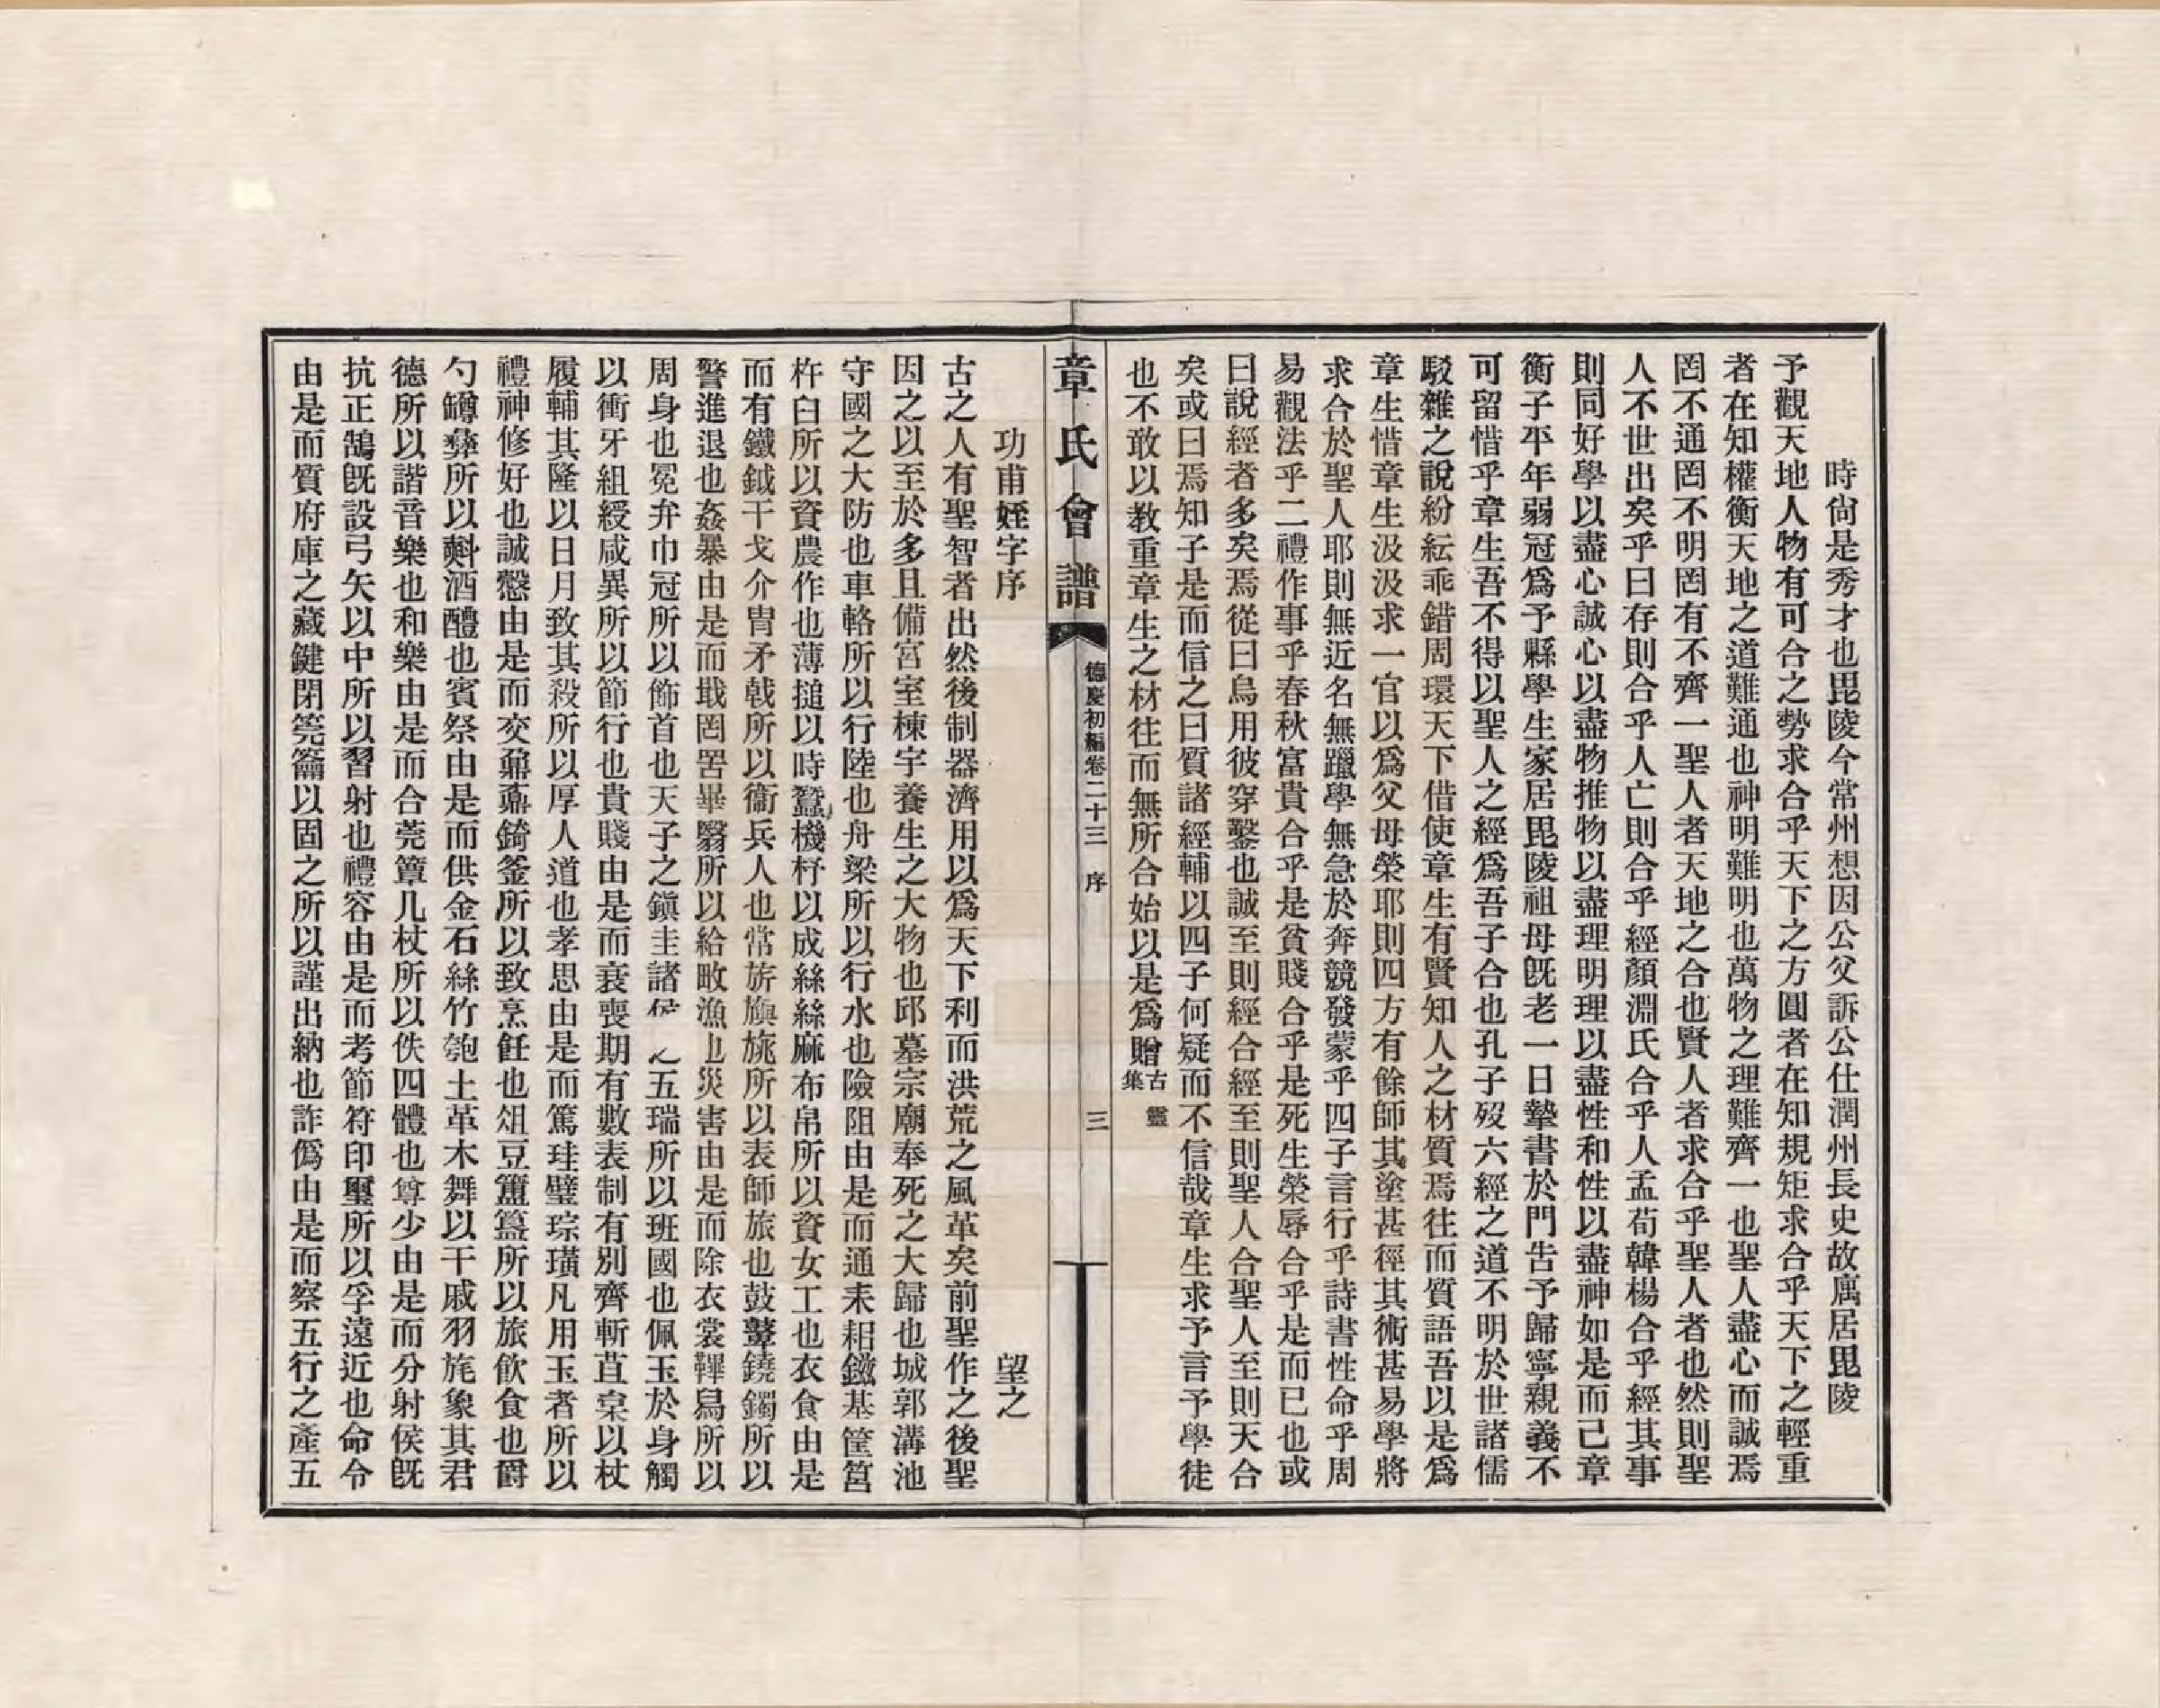 時尙是秀才也毘陵今常州想因公父訴公仕潤州長史故寓居毘陵
予觀天地人物有可合之勢求合乎天下之方圓者在知規矩求合乎天下之輕重
者在知權衡天地之道難通也神明難明也萬物之理難齊一也聖人盡心而誠焉
罔不通罔不明罔有不齊一聖人者天地之合也賢人者求合乎聖人者也然則聖
人不世出矣乎曰存則合乎人亡則合乎經顏淵氏合乎人孟荀韓楊合乎經其事
則同好學以盡心誠心以盡物推物以盡理明理以盡性和性以盡神如是而已章
衡子平年弱冠爲予縣學生家居毘陵祖母旣老一日摯書於門告予歸寧親義不
可留惜乎章生吾不得以聖人之經爲吾子合也孔子歿六經之道不明於世諸儒
駁雜之說紛紜乖錯周環天下借使章生有賢知人之材質焉往而質語吾以是爲
章生惜章生汲汲求一官以爲父母榮耶則四方有餘師其塗甚徑其術甚易學將
求合於聖人耶則無近名無躐學無急於奔競發蒙乎四子言行乎詩書性命乎周
易觀法乎二禮作事乎春秋富貴合乎是貧賤合乎是死生榮辱合乎是而已也或
曰說經者多矣焉從曰烏用彼穿鑿也誠至則經合經至則聖人合聖人至則天合
矣或曰焉知子是而信之曰質諸經輔以四子何疑而不信哉章生求予言予學徒
也不敢以教重章生之材往而無所合始以是爲贈古靈集
章氏會譜
德慶初編卷二十三 序
三
功甫姪字序 望之
古之人有聖智者出然後制器濟用以爲天下利而洪荒之風革矣前聖作之後聖
因之以至於多且備宮室棟宇養生之大物也邱墓宗廟奉死之大歸也城郭溝池
守國之大防也車輅所以行陸也舟梁所以行水也險阻由是而通耒耜鎡基筐筥
杵臼所以資農作也薄搥以時蠶機杼以成絲絲麻布帛所以資女工也衣食由是
而有鐵鉞干戈介胄矛戟所以衞兵人也常旂旟旐所以表師旅也鼓鼙鐃鐲所以
警進退也姦暴由是而戢罔罟畢翳所以給畋漁也災害由是而除衣裳鞸舄所以
周身也冕弁巾冠所以飾首也天子之鎭圭諸侯之五瑞所以班國也佩玉於身觸
以衝牙組綬咸異所以節行也貴賤由是而衰喪期有數表制有別齊斬苴枲以杖
履輔其隆以日月致其殺所以厚人道也孝思由是而篤珪璧琮璜凡用玉者所以
禮神修好也誠愨由是而交鼐鼒錡釜所以致烹飪也俎豆簠簋所以旅飮食也爵
勺罇彝所以㪺酒醴也賓祭由是而供金石絲竹匏土革木舞以干戚羽旄象其君
德所以諧音樂也和樂由是而合莞簟几杖所以佚四體也尊少由是而分射侯旣
抗正鵠旣設弓矢以中所以習射也禮容由是而考節符印璽所以孚遠近也命令
由是而質府庫之藏鍵閉筦籥以固之所以謹出納也詐僞由是而察五行之產五